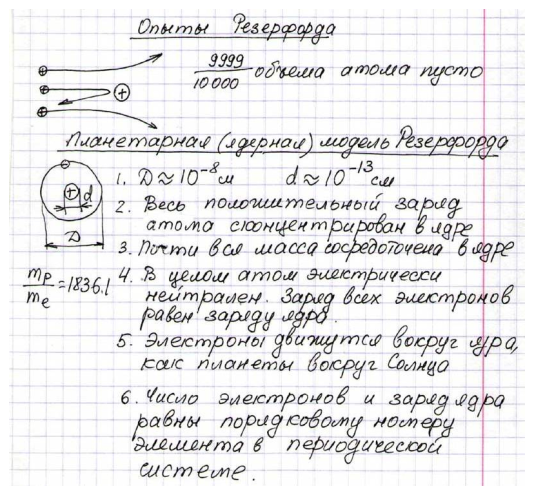 Опыты Резерфорда
9999/10000 объема атома пусто
Планетарная (ядерная) модель Резерфорда
1. D ≈ 10⁻⁸ м d ≈ 10⁻¹³ см
2. Весь положительный заряд
атома сконцентрирован в ядре
3. Почти вся масса сосредоточена в ядре
d
D
mp/me = 1836.1
4. В целом атом электрически
нейтрален. Заряд всех электронов
равен заряду ядра.
5. Электроны движутся вокруг ядра,
как планеты вокруг Солнца
6. Число электронов и заряд ядра
равны порядковому номеру
элемента в периодической
системе.